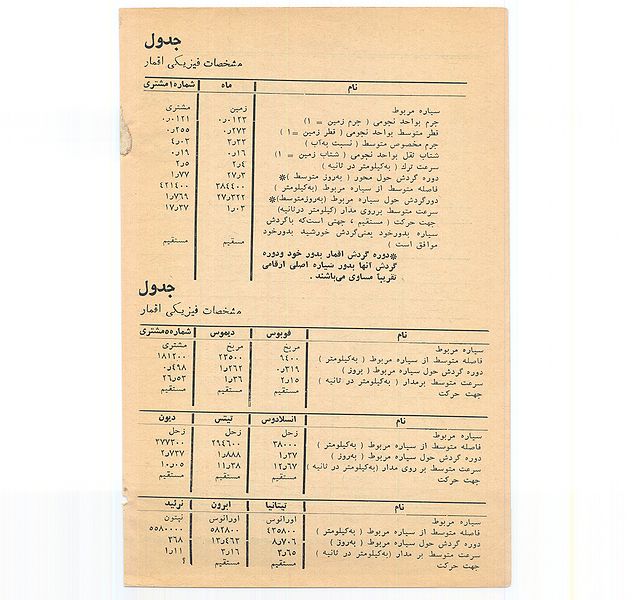 جدول
مشخصات فیزیکی اقمار
نام ماه شماره ۱ مشتری
سیاره مربوط زمین مشتری
جرم بواحد نجومی ( جرم زمین = ۱) ۰٫۰۱۲۳ ۰٫۰۱۲۱
قطر متوسط بواحد نجومی ( قطر زمین = ۱ ) ۰٫۲۷۳ ۰٫۲۵۵
جرم مخصوص متوسط ( نسبت به‌آب ) ۳٫۳۲ ۴٫۰۳
شتاب ثقل بواحد نجومی ( شتاب زمین = ۱) ۰٫۱۶ ۰٫۱۹
سرعت ترک ( به‌کیلومتر در ثانیه ) ۲٫۴ ۲٫۵
دوره گردش حول محور ( به‌روز متوسط )* ۲۷٫۳ ۱٫۷۷
فاصله متوسط از سیاره مربوط (به‌کیلومتر ) ۳۸۴۴۰۰ ۴۲۱۴۰۰
دورگردش حول سیاره مربوط (به‌روزمتوسط)* ۲۷٫۳۲۲ ۱٫۷۶۹
سرعت متوسط برروی مدار (کیلومتر درثانیه) ۱٫۰۳ ۱۷٫۳۷
جهت حرکت ( مستقیم ، جهتی است‌که باگردش
سیاره بدورخود یعنی‌گردش خورشید بدورخود
موافق است ) مستقیم مستقیم
*دوره گردش اقمار بدور خود ودوره
گردش آنها بدور سیاره اصلی ارقامی
تقریباً مساوی می‌باشند .
جدول
مشخصات فیزیکی اقمار
نام فوبوس دیموس شماره۵مشتری
سیاره مربوط مریخ مریخ مشتری
فاصله متوسط از سیاره مربوط ( به‌کیلومتر ) ۹۴۰۰ ۲۳۵۰۰ ۱۸۱۲۰۰
دوره گردش حول سیاره مربوط ( بروز ) ۰٫۳۱۹ ۱٫۲۶۲ ۰٫۴۹۸
سرعت متوسط برمدار ( به‌کیلومتر در ثانیه ) ۲٫۱۵ ۱٫۳۶ ۲۶٫۵۳
جهت حرکت مستقیم مستقیم مستقیم
نام انسلادوس تیتس دیون
سیاره مربوط زحل زحل زحل
فاصله متوسط از سیاره مربوط ( به‌کیلومتر ) ۳۸۰۰۰ ۲۹۴۶۰۰ ۳۷۷۳۰۰
دوره گردش حول سیاره مربوط ( به‌روز ) ۱٫۳۷ ۱٫۸۸۸ ۲٫۷۳۷
سرعت متوسط بر روی مدار ( به‌کیلومتر در ثانیه ) ۱۲٫۶۷ ۱۱٫۳۸ ۱۰٫۰۵
جهت حرکت مستقیم مستقیم مستقیم
نام تیتانیا ابرون نرئید
سیاره مربوط اورانوس اورانوس نپتون
فاصله متوسط از سیاره مربوط ( به‌کیلومتر ) ۴۳۵۸۰۰ ۵۸۲۸۰۰ ۵۵۸۰۰۰۰
دوره گردش حول سیاره مربوط ( به‌روز ) ۸٫۷۰۶ ۱۳٫۴۶۳ ۳۶۸
سرعت متوسط بر مدار (به‌کیلومتر در ثانیه ) ۳٫۶۵ ۳٫۱۶ ۱٫۱۱
جهت حرکت مستقیم مستقیم ؟